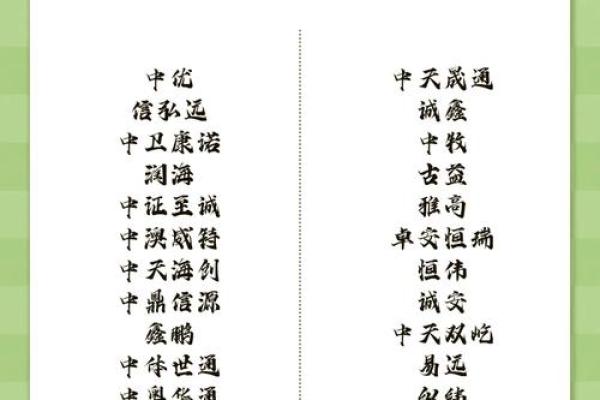 中优
信弘远
中卫康诺
润海
中证至诚
中澳威特
中天海创
中鼎信源
鑫鹏
中体世通
中天晟通
诚鑫
中牧
古益
雅高
卓安恒瑞
恒伟
诚安
中天双屹
易远